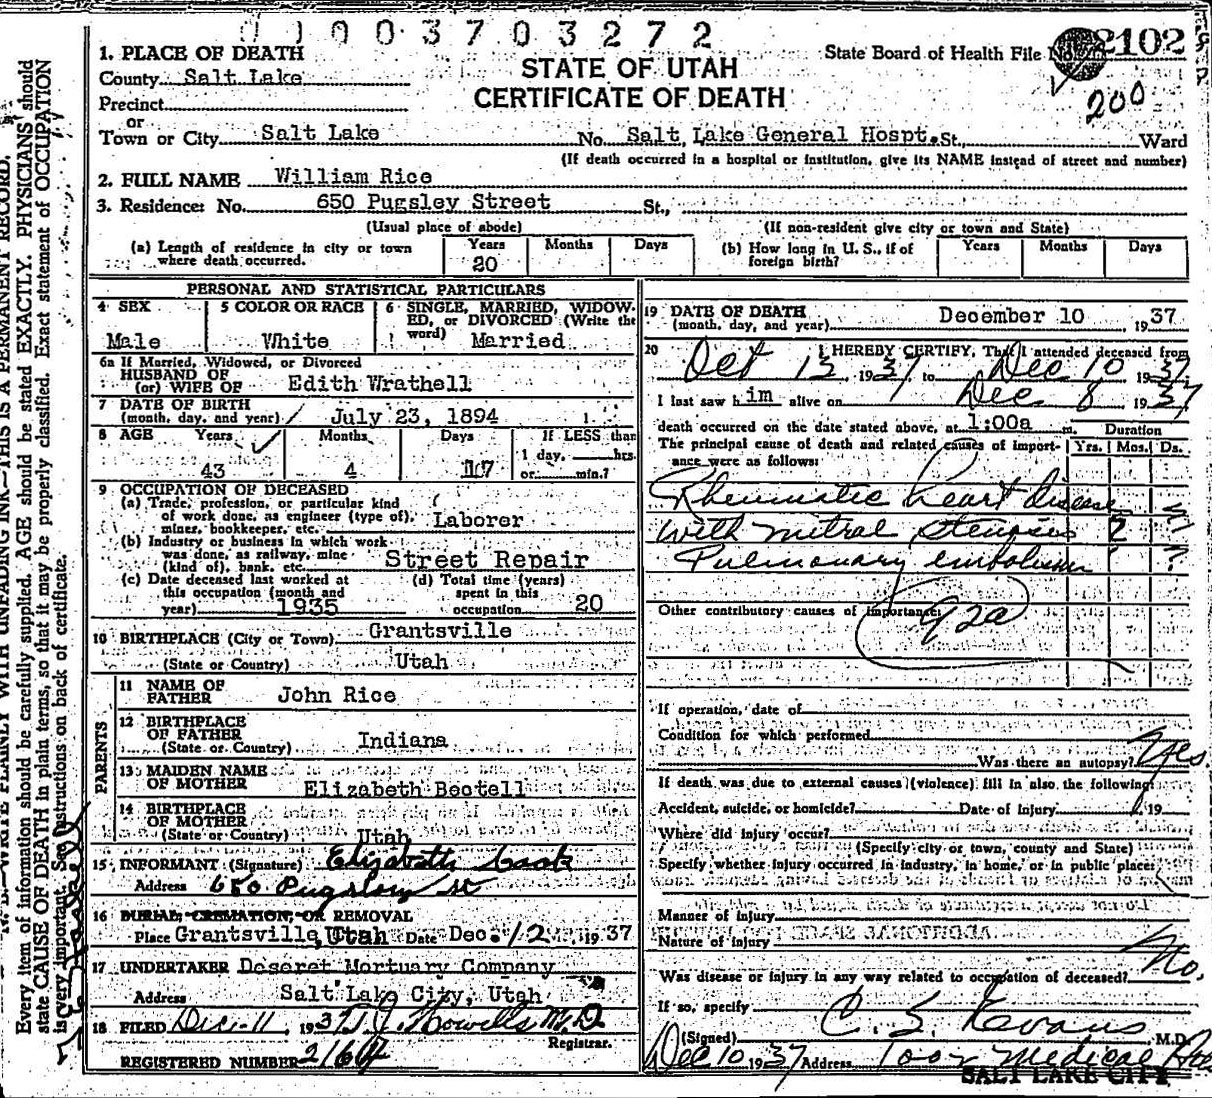 01003703272
1. PLACE OF DEATH
County Salt Lake
Precinct
or
Town or City Salt Lake
STATE OF UTAH
CERTIFICATE OF DEATH
State Board of Health File No. 2102
200
No. Salt Lake General Hospt. St., Ward
(If death occurred in a hospital or institution, give its NAME instead of street and number)
2. FULL NAME William Rice
3. Residence: No. 650 Pugsley Street St.,
(Usual place of abode) (If non-resident give city or town and State)
(a) Length of residence in city or town where death occurred. Years 20 Months Days
(b) How long in U. S., if of foreign birth? Years Months Days
PERSONAL AND STATISTICAL PARTICULARS
4 SEX Male
5 COLOR OR RACE White
6 SINGLE, MARRIED, WIDOWED, or DIVORCED (Write the word) Married
6a If Married, Widowed, or Divorced
HUSBAND OF
(or) WIFE OF Edith Wrathell
7 DATE OF BIRTH
(month, day, and year) July 23, 1894
8 AGE Years Months Days If LESS than
1 day, hrs.
43 4 17 or min.?
9 OCCUPATION OF DECEASED
(a) Trade, profession, or particular kind
of work done, as engineer (type of),
miner, bookkeeper, etc. Laborer
(b) Industry or business in which work
was done, as railway, mine
(kind of), bank, etc. Street Repair
(c) Date deceased last worked at
this occupation (month and
year) 1935
(d) Total time (years)
spent in this
occupation 20
10 BIRTHPLACE (City or Town) Grantsville
(State or Country) Utah
PARENTS
11 NAME OF
FATHER John Rice
12 BIRTHPLACE
OF FATHER
(State or Country) Indiana
13 MAIDEN NAME
OF MOTHER Elizabeth Beotell
14 BIRTHPLACE
OF MOTHER
(State or Country) Utah
15 INFORMANT (Signature) Elizabeth Cook
Address 650 Pugsley St
16 BURIAL, CREMATION, OR REMOVAL
Place Grantsville, Utah Date Dec. 12, 1937
17 UNDERTAKER Deseret Mortuary Company
Address Salt Lake City, Utah
18 FILED Dec. 11, 1937 T. J. Howells M.D.
Registrar.
REGISTERED NUMBER 2164
19 DATE OF DEATH
(month, day, and year) December 10 1937
20 I HEREBY CERTIFY, That I attended deceased from
Oct 13, 1937, to Dec 10 1937
I last saw him alive on Dec 8 1937
death occurred on the date stated above, at 1:00a m.
The principal cause of death and related causes of importance were as follows:
Duration
Yrs. Mos. Ds.
Rheumatic heart disease
with mitral stenosis 2
Pulmonary embolism ?
Other contributory causes of importance:
92a
If operation, date of
Condition for which performed
Was there an autopsy? Yes.
If death was due to external causes (violence) fill in also the following:
Accident, suicide, or homicide? Date of injury 19
Where did injury occur?
(Specify city or town, county and State)
Specify whether injury occurred in industry, in home, or in public place:
Manner of injury
Nature of injury
Was disease or injury in any way related to occupation of deceased? No.
If so, specify
(Signed) C. S. Evans M.D.
Dec 10 1937 Address Medical
SALT LAKE CITY
N. B.—WRITE PLAINLY WITH UNFADING INK—THIS IS A PERMANENT RECORD.
Every item of information should be carefully supplied. AGE should be stated EXACTLY. PHYSICIANS should
state CAUSE OF DEATH in plain terms, so that it may be properly classified. Exact statement of OCCUPATION
is very important. See instructions on back of certificate.